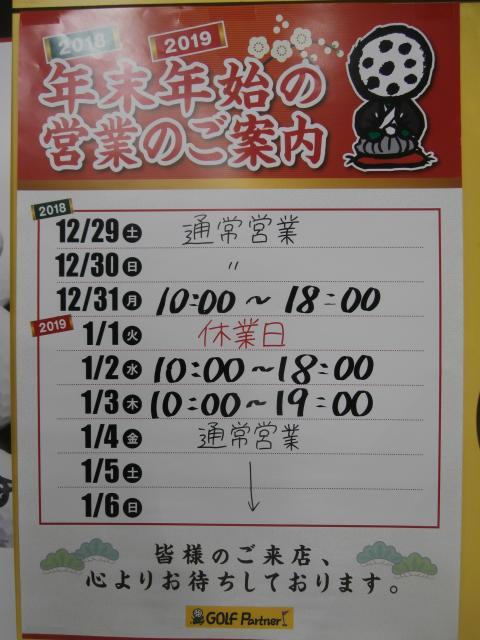 2018 2019
年末年始の
営業のご案内
2018
12/29 土 通常営業
12/30 日 〃
12/31 月 10:00～18:00
2019
1/1 火 休業日
1/2 水 10:00～18:00
1/3 木 10:00～19:00
1/4 金 通常営業
1/5 土
1/6 日
皆様のご来店、
心よりお待ちしております。
GOLF Partner